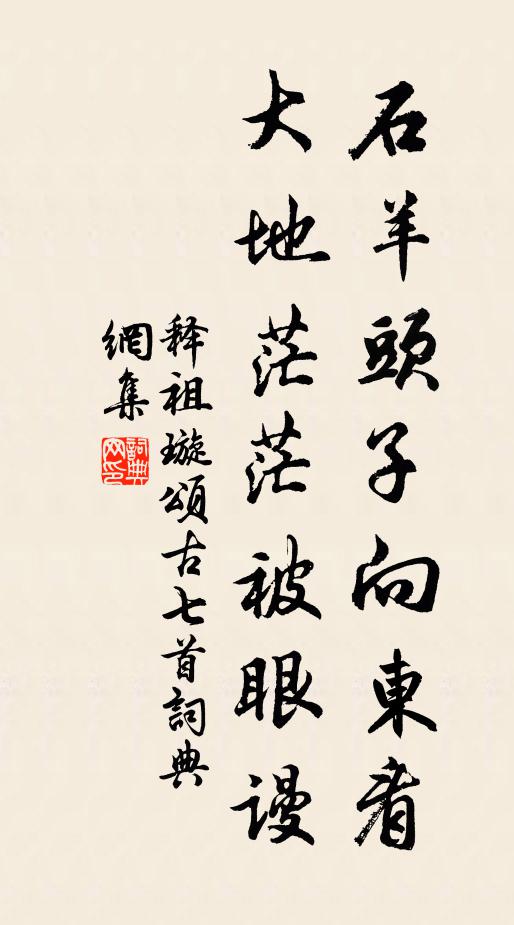 石羊頭子向東看
大地茫茫被眼謾
释祖璇頌古七首詞典
網集
詞典
网印